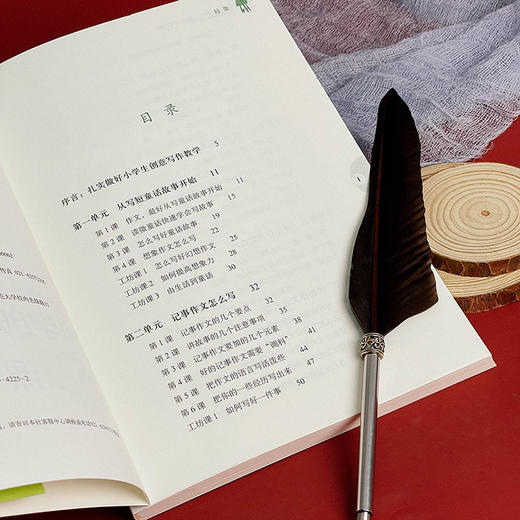 目 录
目 录
序言：扎实做好小学生创意写作教学 5
第一单元 从写短童话故事开始 11
第 1 课 作文，最好从写童话故事开始 11
第 2 课 读微童话快速学会写故事 15
第 3 课 怎么写好童话故事 19
第 4 课 想象作文怎么写 22
工坊课 1 怎么写好幻想作文 25
工坊课 2 如何提高想象力 28
工坊课 3 由生活到童话 30
第二单元 记事作文怎么写 32
第 1 课 记事作文的几个要点 32
第 2 课 讲故事的几个注意事项 35
第 3 课 记事作文要加的几个元素 38
第 4 课 好的记事作文需要“调料” 41
第 5 课 把作文的语言写活泼些 44
第 6 课 把你的一些经历写出来 47
工坊课 1 如何写好一件事 50
1